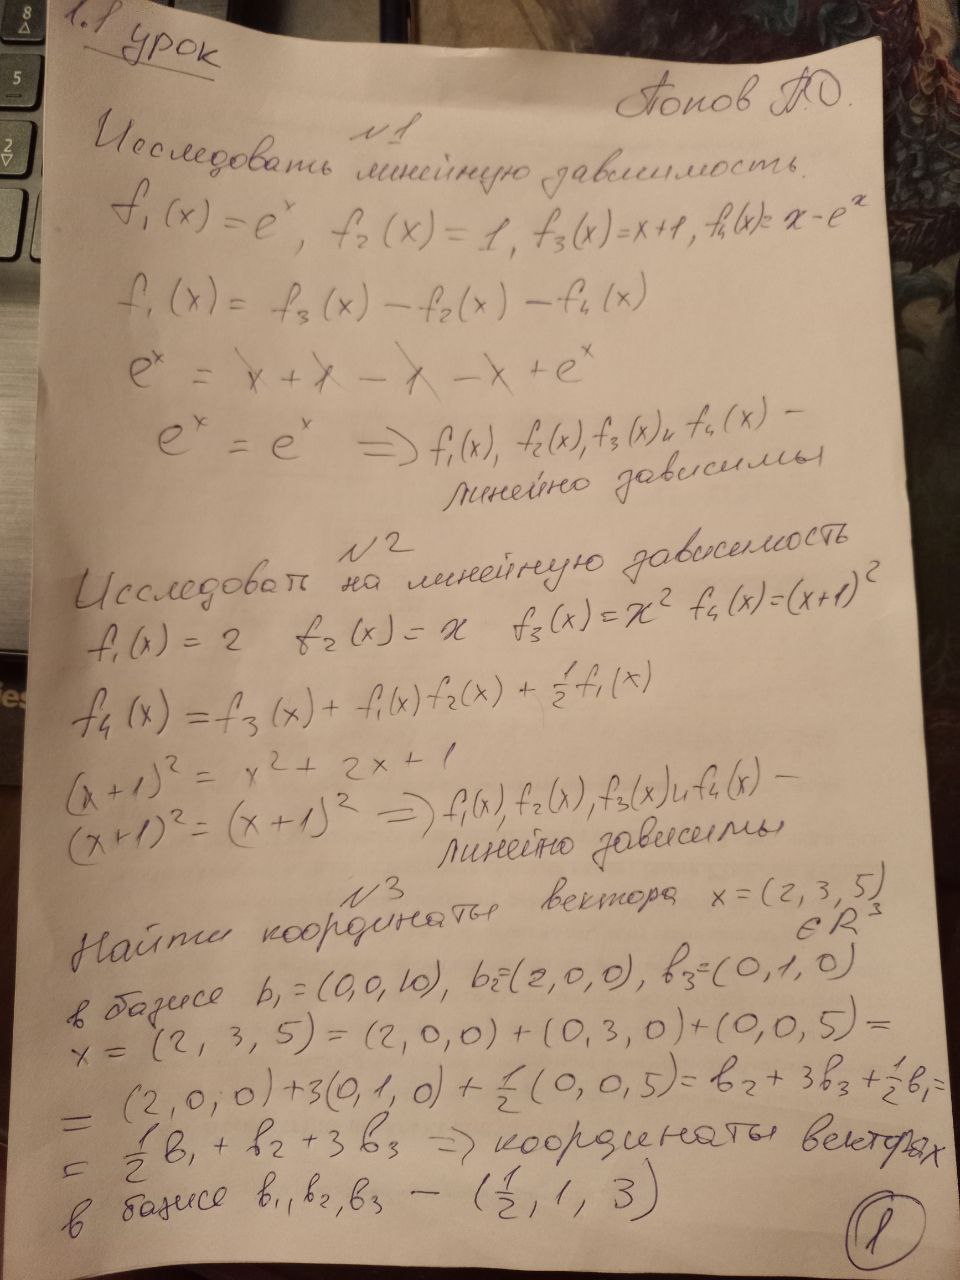 1.1 урок
Попов А.О.
№1
Исследовать линейную зависимость.
f₁(x) = eˣ, f₂(x) = 1, f₃(x) = x+1, f₄(x) = x - eˣ
f₁(x) = f₃(x) - f₂(x) - f₄(x)
eˣ = x + 1 - 1 - x + eˣ
eˣ = eˣ => f₁(x), f₂(x), f₃(x) и f₄(x) -
линейно зависимы
№2
Исследовать на линейную зависимость
f₁(x) = 2 f₂(x) = x f₃(x) = x² f₄(x) = (x+1)²
f₄(x) = f₃(x) + f₁(x) f₂(x) + 1/2 f₁(x)
(x+1)² = x² + 2x + 1
(x+1)² = (x+1)² => f₁(x), f₂(x), f₃(x) и f₄(x) -
линейно зависимы
№3
Найти координаты вектора x = (2, 3, 5)
∈ R³
в базисе b₁ = (0,0,10), b₂ = (2,0,0), b₃ = (0,1,0)
x = (2, 3, 5) = (2, 0, 0) + (0, 3, 0) + (0, 0, 5) =
= (2, 0, 0) + 3(0, 1, 0) + 1/2 (0, 0, 5) = b₂ + 3b₃ + 1/2 b₁ =
= 1/2 b₁ + b₂ + 3 b₃ => координаты вектора x
в базисе b₁, b₂, b₃ - (1/2, 1, 3)
1
8
5
2
ies